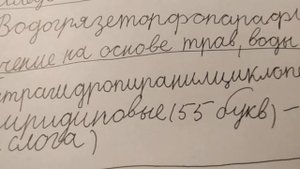 Водогрязеторфопараф
чение на основе трав, воды
трагидропиранилциклопе
иридиновые (55 букв) –
слова)